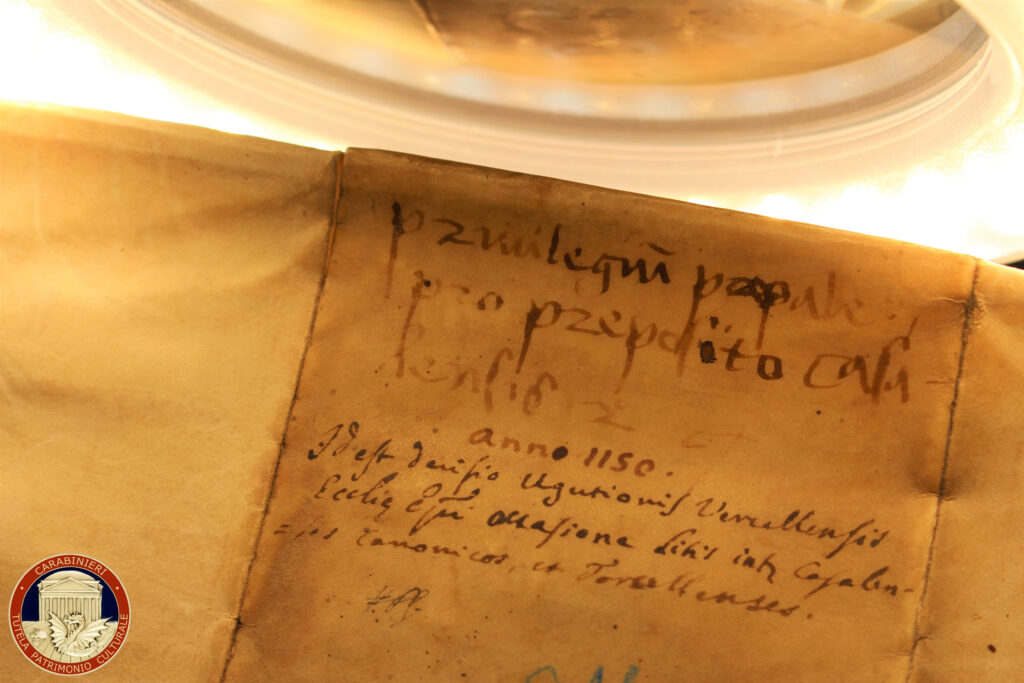 prīvilegiū papale
pro preposito Casa-
lensis
anno 1150.
Id est decisio Ugutionis Vercellensis
Ecclię Epi occasione litis intr Casalen-
=ses Canonicos, et Torcellenses.
CARABINIERI
TUTELA PATRIMONIO CULTURALE